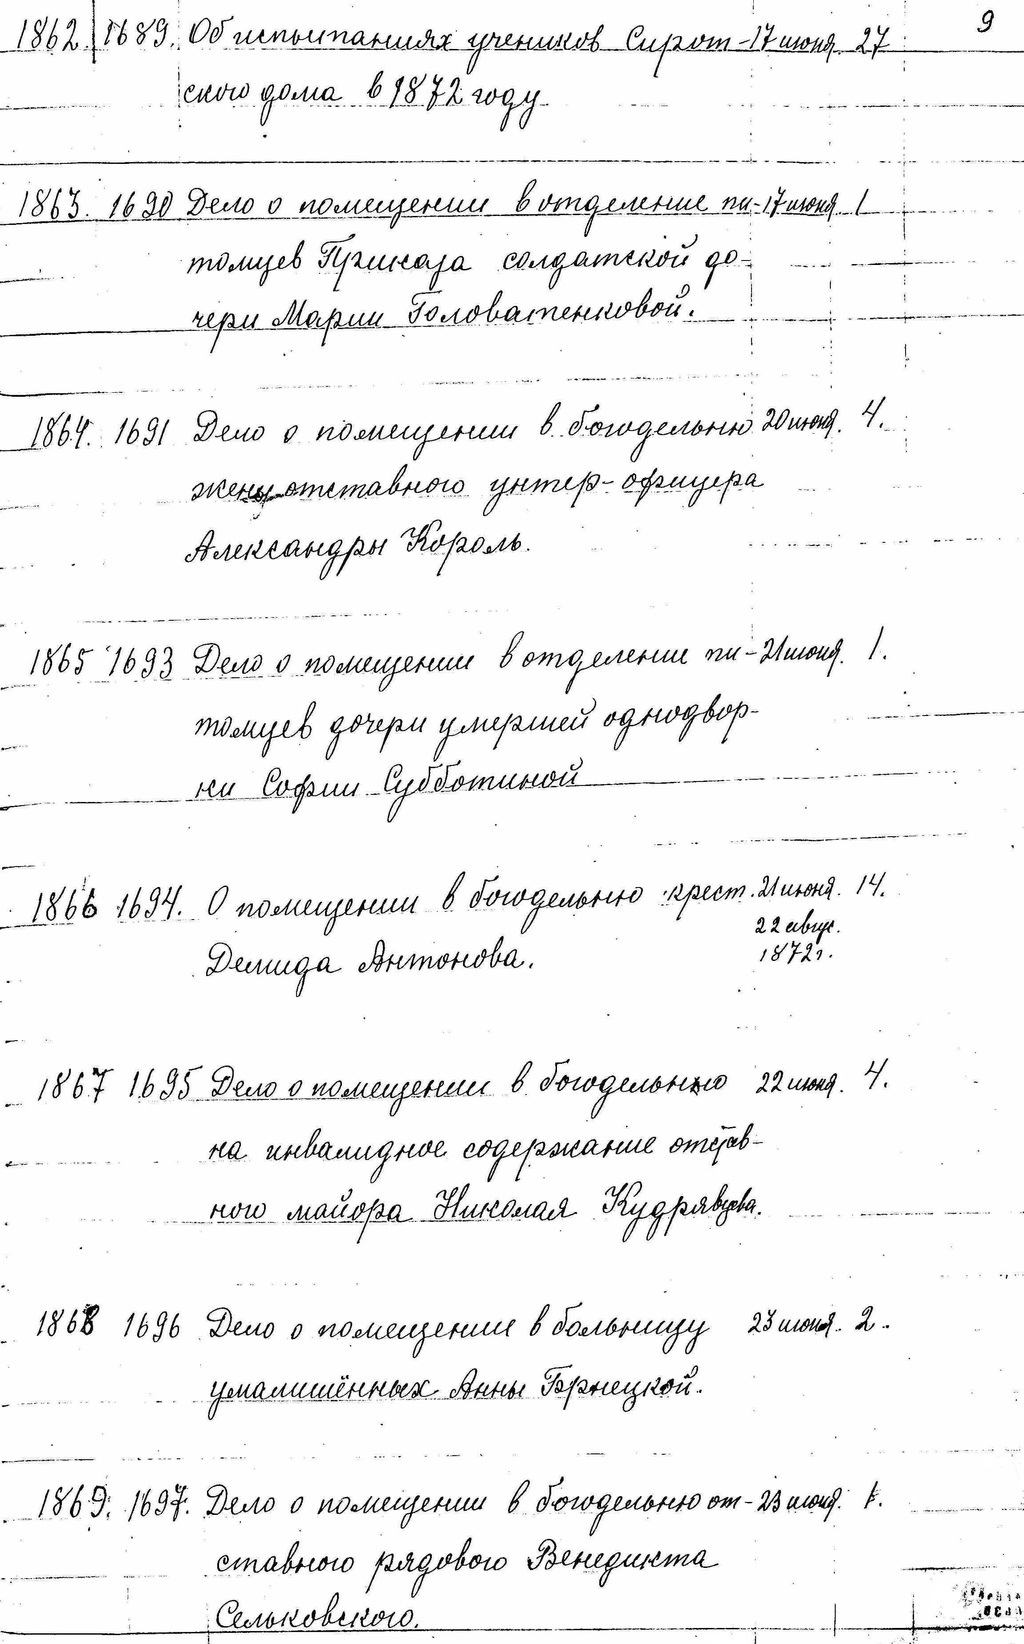 9
1862 1689. Об испытаниях учеников Сирот- 17 июня 27
ского дома в 1872 году
1863. 1690 Дело о помещении в отделение пи- 17 июня 1
томцев Приказа солдатской до-
чери Марии Головатенковой.
1864. 1691 Дело о помещении в богодельню 20 июня. 4.
жены отставного унтер-офицера
Александры Король.
1865 1693 Дело о помещении в отделение пи- 21 июня. 1.
томцев дочери умершей однодвор-
ки Софии Субботиной
1866 1694. О помещении в богодельню крест. 21 июня. 14.
22 авгус.
Демида Антонова.
1872г.
1867 1695 Дело о помещении в богодельню 22 июня. 4.
на инвалидное содержание отстав-
ного майора Николая Кудрявцева.
1868 1696 Дело о помещении в больницу 23 июня. 2.
умалишённых Анны
1869. 1697. Дело о помещении в богодельню от- 23 июня. 1.
ставного рядового Венедикта
Сельковского.